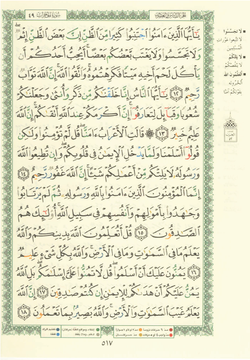 سورة الحجرات ٤٩
يَٰٓأَيُّهَا ٱلَّذِينَ ءَامَنُوا۟ ٱجْتَنِبُوا۟ كَثِيرًا مِّنَ ٱلظَّنِّ إِنَّ بَعْضَ ٱلظَّنِّ إِثْمٌ
وَلَا تَجَسَّسُوا۟ وَلَا يَغْتَب بَّعْضُكُم بَعْضًا أَيُحِبُّ أَحَدُكُمْ أَن
يَأْكُلَ لَحْمَ أَخِيهِ مَيْتًا فَكَرِهْتُمُوهُ وَٱتَّقُوا۟ ٱللَّهَ إِنَّ ٱللَّهَ تَوَّابٌ
رَّحِيمٌ ١٢ يَٰٓأَيُّهَا ٱلنَّاسُ إِنَّا خَلَقْنَٰكُم مِّن ذَكَرٍ وَأُنثَىٰ وَجَعَلْنَٰكُمْ
شُعُوبًا وَقَبَآئِلَ لِتَعَارَفُوٓا۟ إِنَّ أَكْرَمَكُمْ عِندَ ٱللَّهِ أَتْقَىٰكُمْ إِنَّ ٱللَّهَ
عَلِيمٌ خَبِيرٌ ١٣ قَالَتِ ٱلْأَعْرَابُ ءَامَنَّا قُل لَّمْ تُؤْمِنُوا۟ وَلَٰكِن
قُولُوٓا۟ أَسْلَمْنَا وَلَمَّا يَدْخُلِ ٱلْإِيمَٰنُ فِى قُلُوبِكُمْ وَإِن تُطِيعُوا۟ ٱللَّهَ
وَرَسُولَهُۥ لَا يَلِتْكُم مِّنْ أَعْمَٰلِكُمْ شَيْـًٔا إِنَّ ٱللَّهَ غَفُورٌ رَّحِيمٌ ١٤
إِنَّمَا ٱلْمُؤْمِنُونَ ٱلَّذِينَ ءَامَنُوا۟ بِٱللَّهِ وَرَسُولِهِۦ ثُمَّ لَمْ يَرْتَابُوا۟
وَجَٰهَدُوا۟ بِأَمْوَٰلِهِمْ وَأَنفُسِهِمْ فِى سَبِيلِ ٱللَّهِ أُو۟لَٰٓئِكَ هُمُ
ٱلصَّٰدِقُونَ ١٥ قُلْ أَتُعَلِّمُونَ ٱللَّهَ بِدِينِكُمْ وَٱللَّهُ
يَعْلَمُ مَا فِى ٱلسَّمَٰوَٰتِ وَمَا فِى ٱلْأَرْضِ وَٱللَّهُ بِكُلِّ شَىْءٍ عَلِيمٌ
١٦ يَمُنُّونَ عَلَيْكَ أَنْ أَسْلَمُوا۟ قُل لَّا تَمُنُّوا۟ عَلَىَّ إِسْلَٰمَكُم بَلِ ٱللَّهُ
يَمُنُّ عَلَيْكُمْ أَنْ هَدَىٰكُمْ لِلْإِيمَٰنِ إِن كُنتُمْ صَٰدِقِينَ ١٧ إِنَّ ٱللَّهَ
يَعْلَمُ غَيْبَ ٱلسَّمَٰوَٰتِ وَٱلْأَرْضِ وَٱللَّهُ بَصِيرٌۢ بِمَا تَعْمَلُونَ ١٨
٥١٧